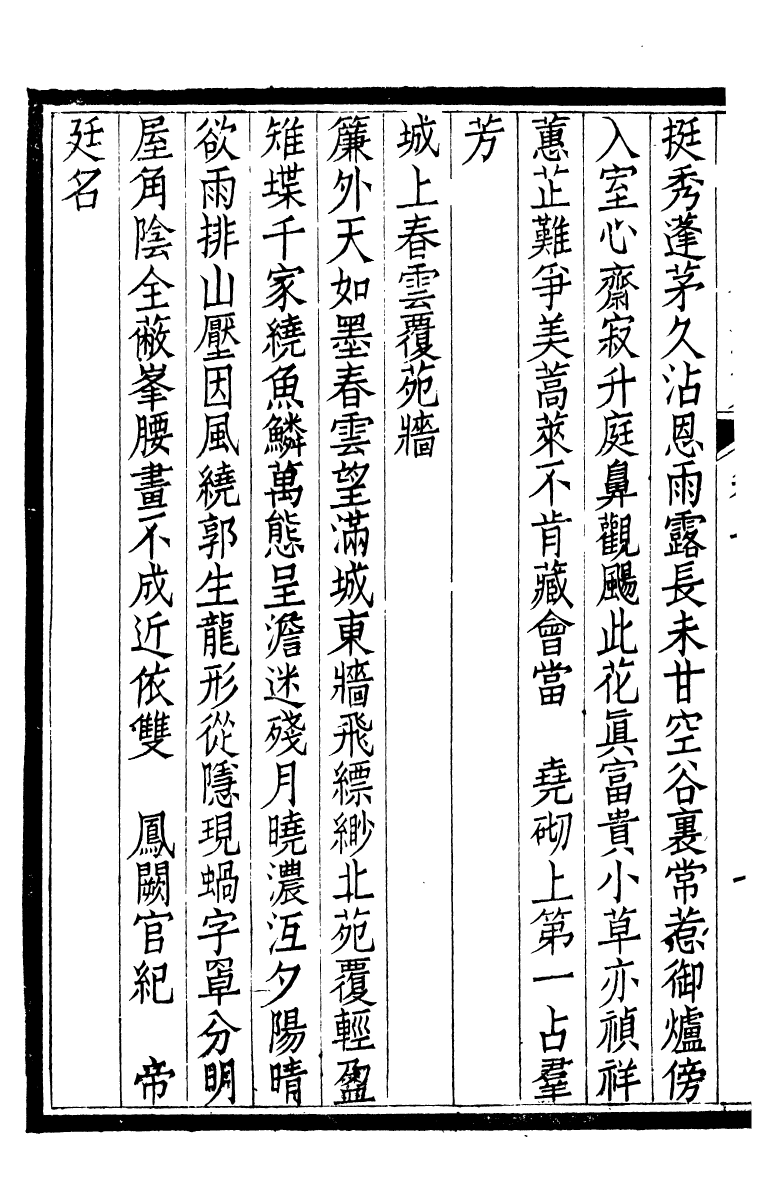 挺秀蓬茅久沾恩雨露長未甘空谷裏常惹御爐傍
入室心齋寂升庭鼻觀颺此花眞富貴小草亦禎祥
蕙芷難爭美蒿萊不肯藏會當　堯砌上第一占羣
芳
城上春雲覆苑牆
簾外天如墨春雲望滿城東牆飛縹緲北苑覆輕盈
雉堞千家繞魚鱗萬態呈澹迷殘月曉濃沍夕陽晴
欲雨排山壓因風繞郭生龍形從隱現蝸字罩分明
屋角陰全蔽峯腰畫不成近依雙　鳳闕官紀　帝
廷名